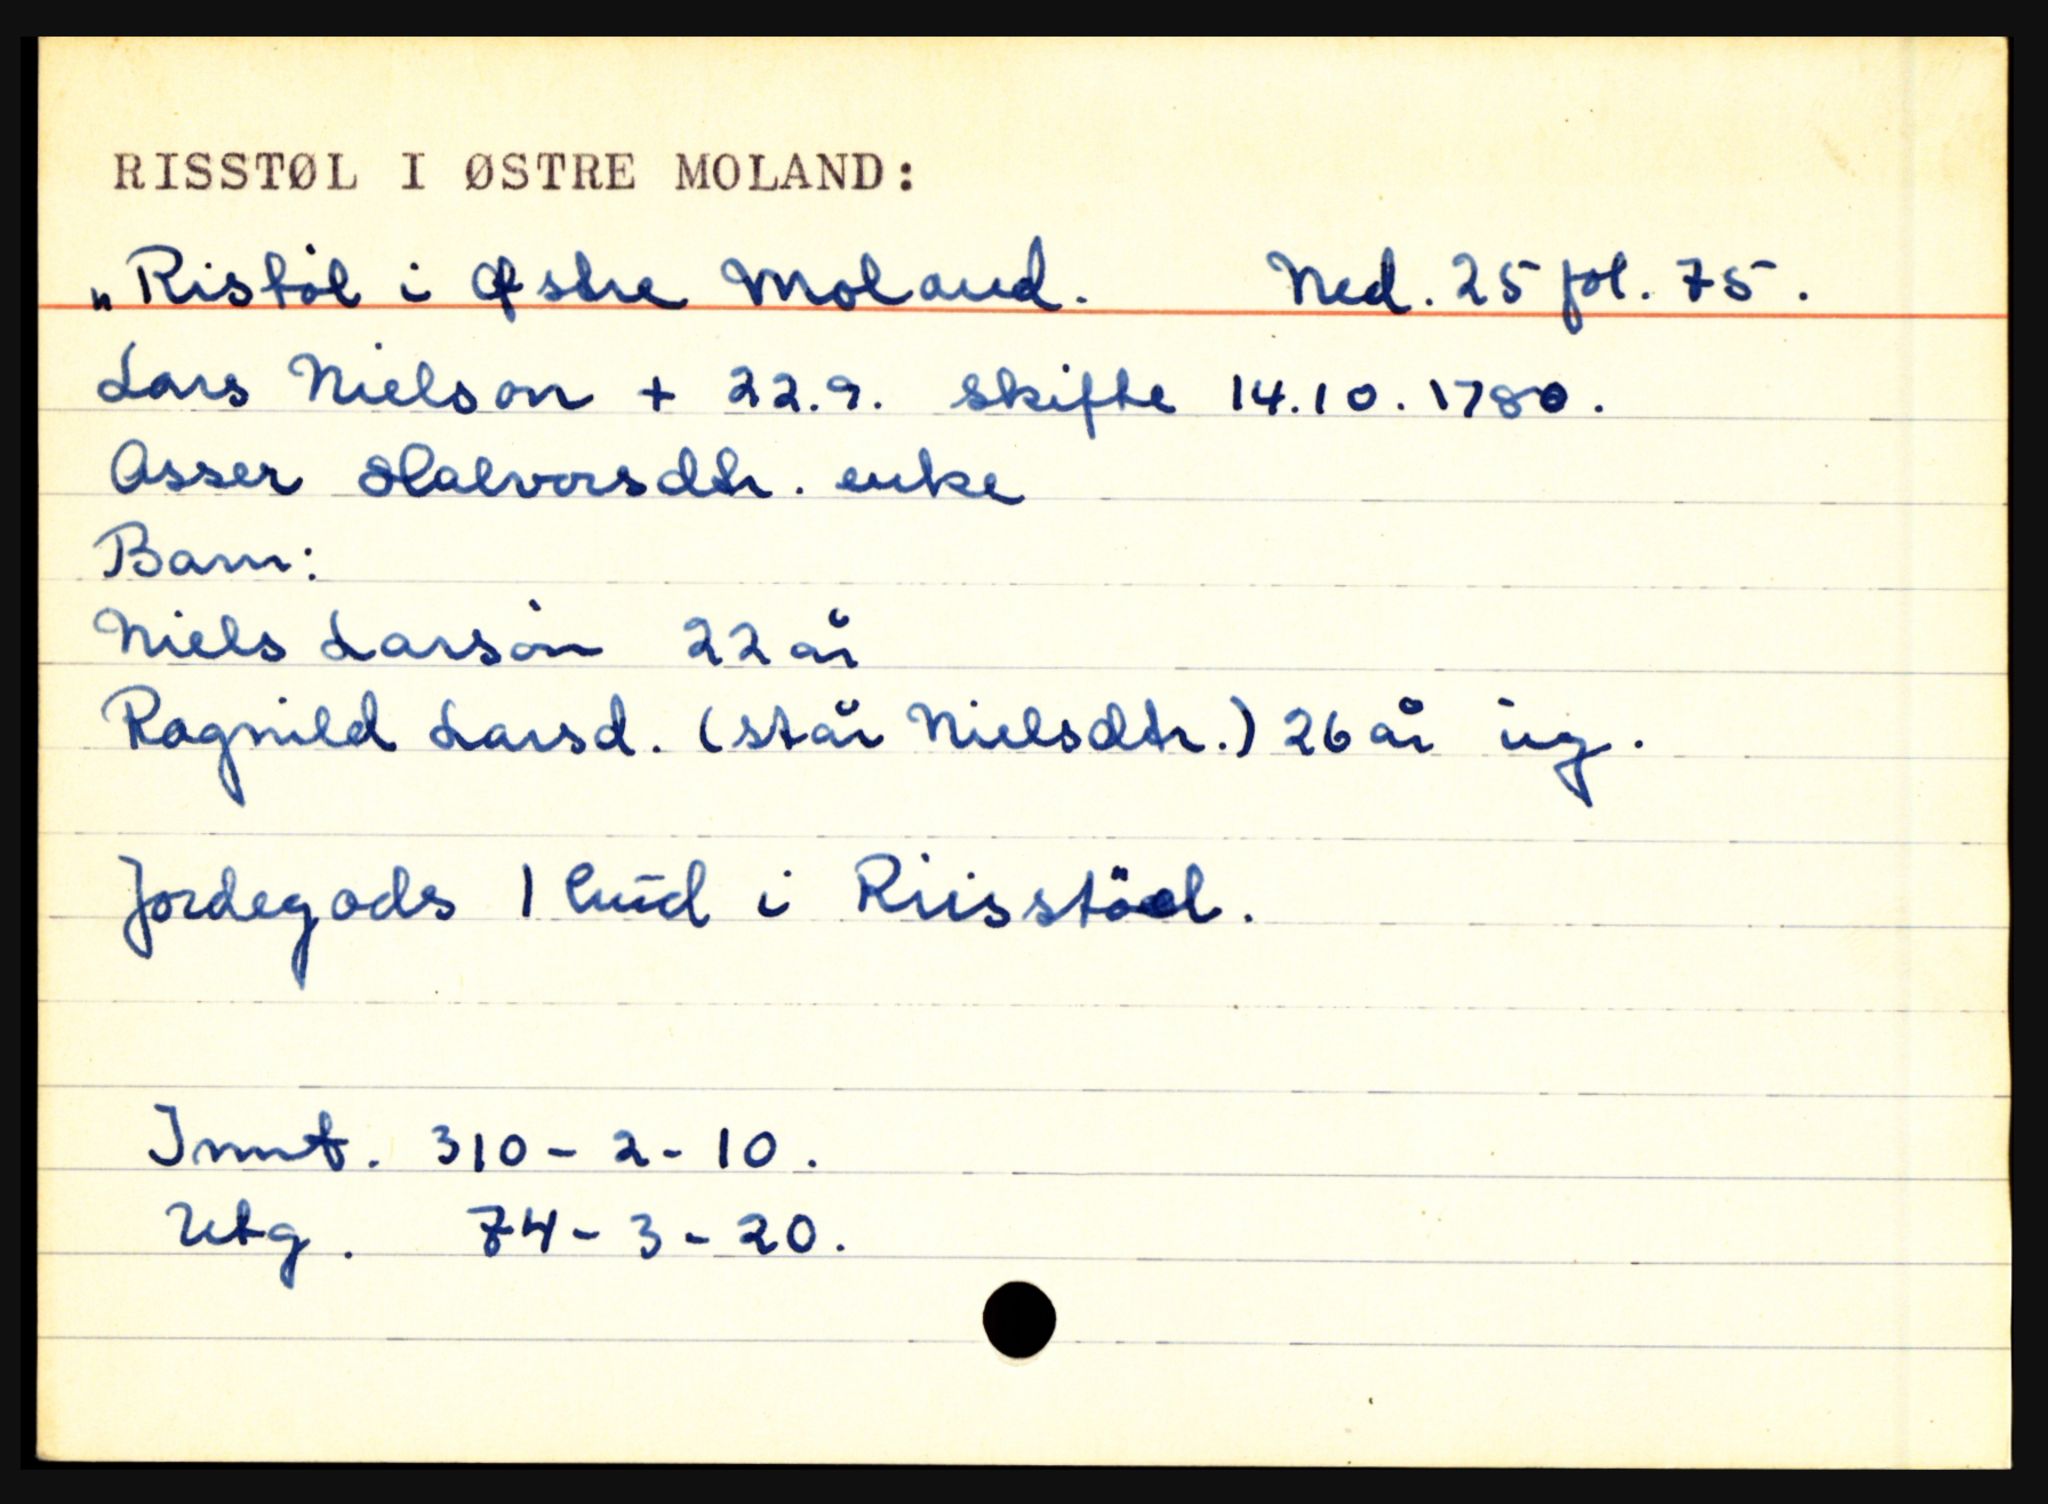 RISSTØL I ØSTRE MOLAND:
„Ristøl i Østre Moland. Ned. 25 fol. 75.
Lars Nielson + 22.9. skifte 14.10.1780.
Asser Halvorsdtr. enke
Barn:
Niels Larson 22 år
Ragnild Larsd. (står Nielsdtr.) 26 år ug.
Jordegods 1 hud i Riisstöel.
Innt. 310-2-10.
Utg. 74-3-20.